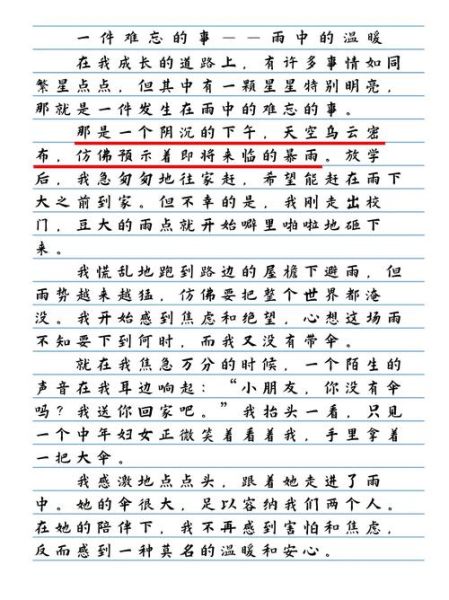 一件难忘的事——雨中的温暖
在我成长的道路上，有许多事情如同
繁星点点，但其中有一颗星星特别明亮，
那就是一件发生在雨中的难忘的事。
那是一个阴沉的下午，天空乌云密
布，仿佛预示着即将来临的暴雨。放学
后，我急匆匆地往家赶，希望能赶在雨下
大之前到家。但不幸的是，我刚走出校
门，豆大的雨点就开始噼里啪啦地砸下
来。
我慌乱地跑到路边的屋檐下避雨，但
雨势越来越猛，仿佛要把整个世界都淹
没。我开始感到焦虑和绝望，心想这场雨
不知要下到何时，而我又没有带伞。
就在我焦急万分的时候，一个陌生的
声音在我耳边响起：“小朋友，你没有伞
吗？我送你回家吧。”我抬头一看，只见
一个中年妇女正微笑着看着我，手里拿着
一把大伞。
我感激地点点头，跟着她走进了雨
中。她的伞很大，足以容纳我们两个人。
在她的陪伴下，我不再感到害怕和焦虑，
反而感到一种莫名的温暖和安心。